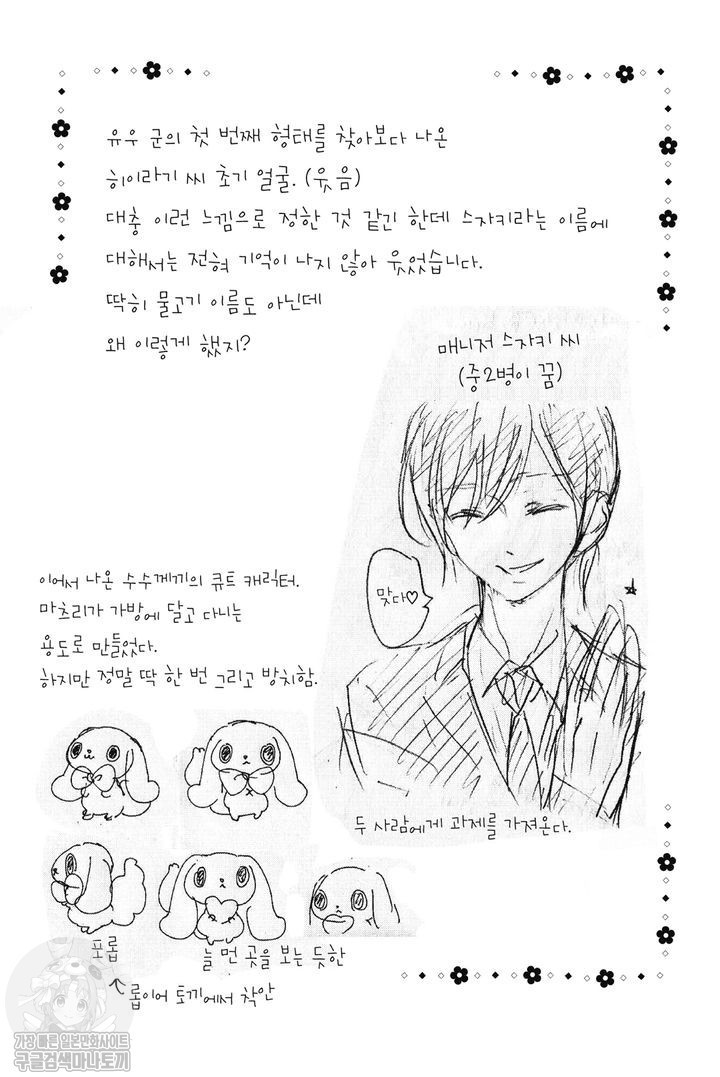 유우 군의 첫 번째 형태를 찾아보다 나온
히이라기 씨 초기 얼굴. (웃음)
대충 이런 느낌으로 정한 것 같긴 한데 스자키라는 이름에
대해서는 전혀 기억이 나지 않아 웃었습니다.
딱히 물고기 이름도 아닌데
왜 이렇게 했지?
매니저 스자키 씨
(중2병이 꿈)
맞다♡
두 사람에게 과제를 가져온다.
이어서 나온 수수께끼의 큐트 캐릭터.
마츠리가 가방에 달고 다니는
용도로 만들었다.
하지만 정말 딱 한 번 그리고 방치함.
포롭
늘 먼 곳을 보는 듯한
롭이어 토끼에서 착안
가장 빠른 일본만화사이트
구글검색마나토끼